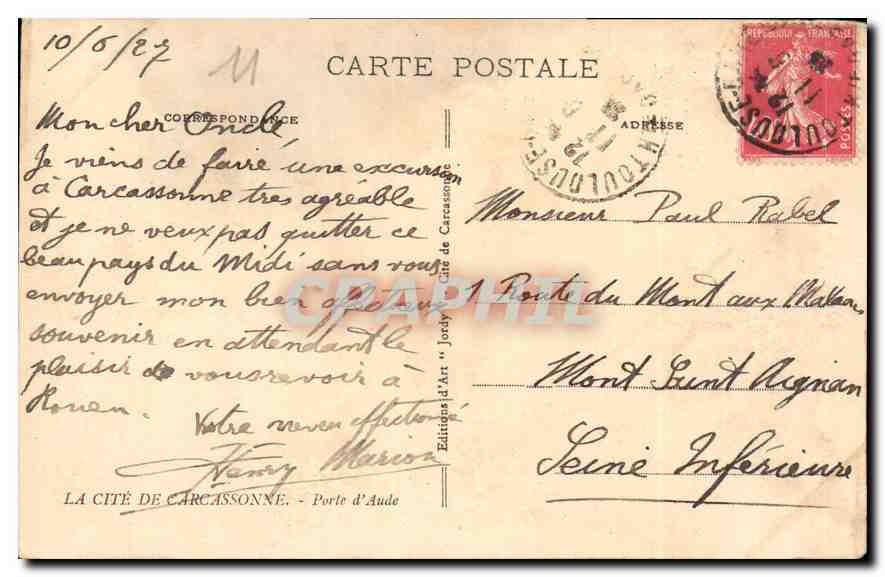 10/6/27
11
CARTE POSTALE
CORRESPONDANCE
ADRESSE
REPUBLIQUE FRANÇAISE
POSTES
TOULOUSE
TOULOUSE
Mon cher Oncle
Je viens de faire une excursion
à Carcassonne très agréable
et je ne veux pas quitter ce
beau pays du Midi sans vous
envoyer mon bien affectueux
souvenir en attendant le
plaisir de vous revoir à
Rouen.
Votre neveu affectionné
Henry Marion
LA CITÉ DE CARCASSONNE. - Porte d'Aude
Editions d'Art "Jordy" Cité de Carcassonne
Monsieur Paul Rabel
1 Route du Mont aux Malades
Mont Saint Aignan
Seine Inférieure
CPAPHIL